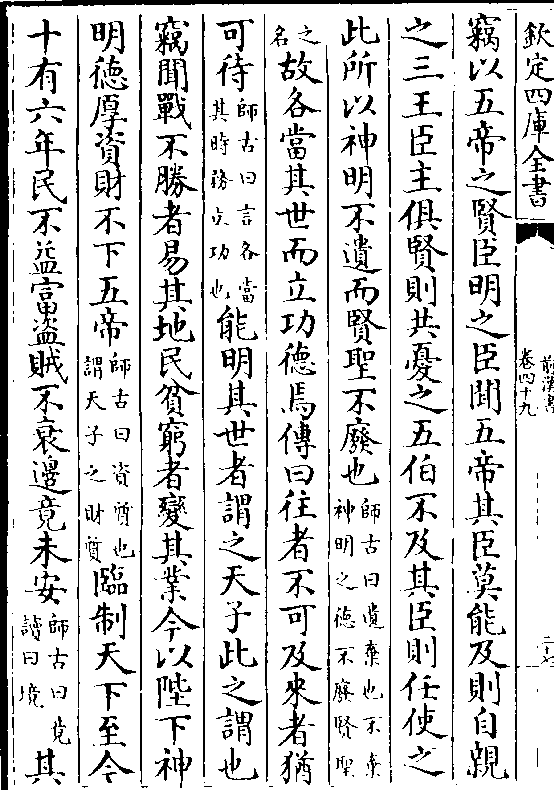 欽定四庫全書
前漢書
卷四十九
竊以五帝之賢臣明之臣聞五帝其臣莫能及則自親
之三王臣主俱賢則共憂之五伯不及其臣則任使之
此所以神明不遺而賢聖不廢也師古曰遺棄也不棄神明之德不廢賢聖
之名故各當其世而立功德焉傳曰往者不可及來者猶
可待師古曰言各當其時務立功也能明其世者謂之天子此之謂也
竊聞戰不勝者易其地民貧窮者變其業今以陛下神
明德厚資財不下五帝師古曰資質也謂天子之財質臨制天下至今
十有六年民不益富盜賊不衰邊竟未安師古曰竟讀曰境其